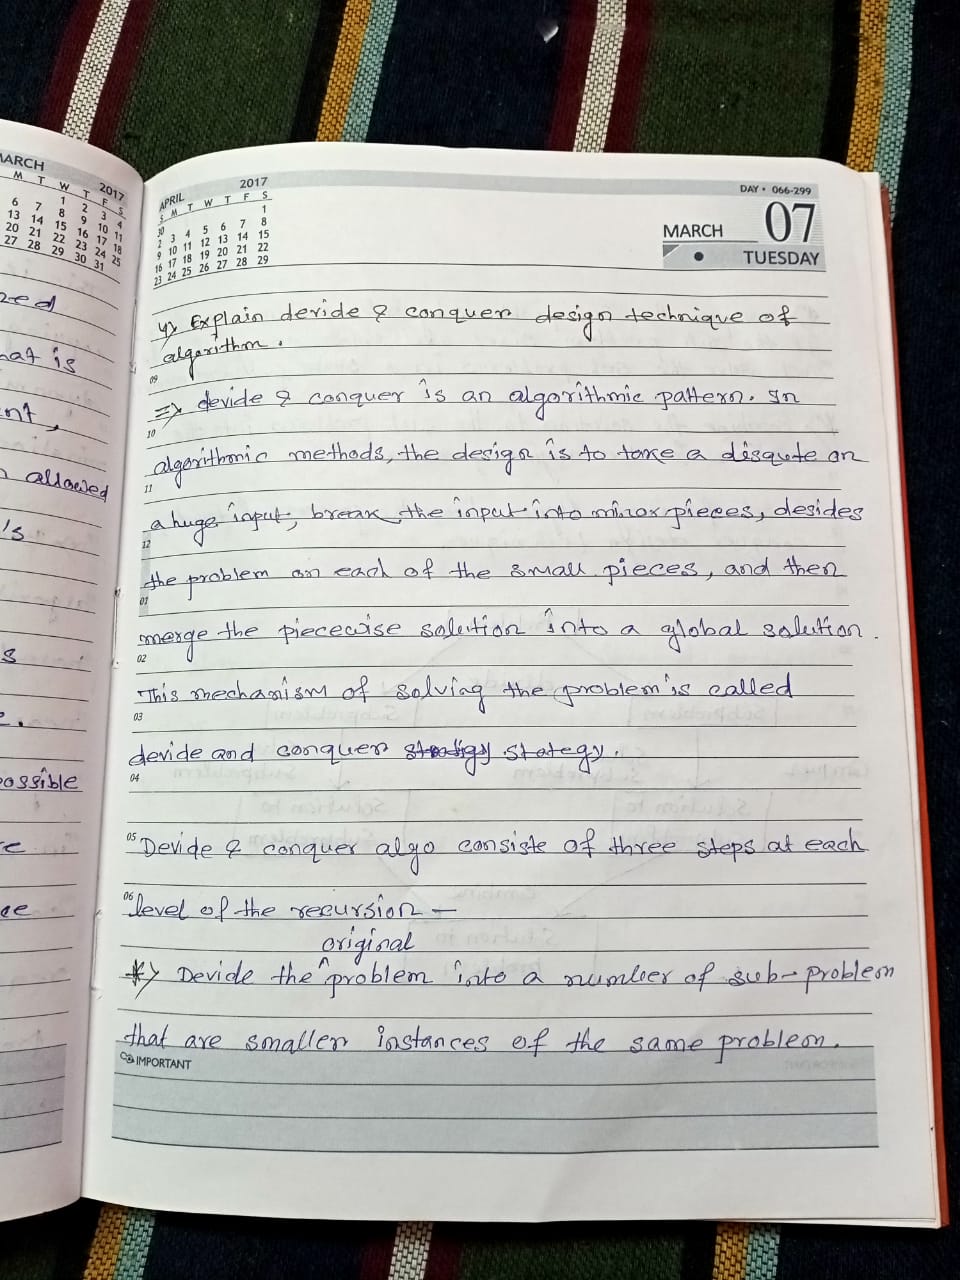 MARCH 2017
M T W T F S
1 2 3 4
6 7 8 9 10 11
13 14 15 16 17 18
20 21 22 23 24 25
27 28 29 30 31
allowed
ossible
APRIL 2017
S M T W T F S
30 1
2 3 4 5 6 7 8
9 10 11 12 13 14 15
16 17 18 19 20 21 22
23 24 25 26 27 28 29
DAY • 066-299
MARCH 07
TUESDAY
4> Explain devide & conquer design technique of
algorithm.
09
=> devide & conquer is an algorithmic pattern. In
10
algorithmic methods, the design is to take a disqute on
11
a huge input, break the input into minor pieces, desides
12
the problem on each of the small pieces, and then
01
merge the piecewise solution into a global solution.
02
This mechanism of solving the problem is called
03
devide and conquer stategy.
04
05 Devide & conquer algo consiste of three steps at each
06 level of the recursion –
original
*> Devide the ^ problem into a number of sub-problem
that are smaller instances of the same problem.
IMPORTANT